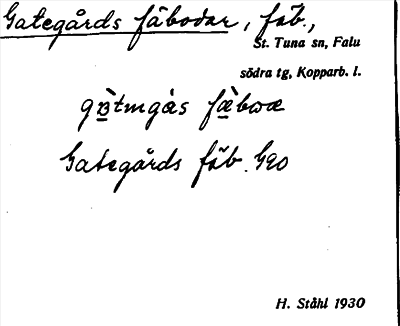 Gategårds fäbodar, fäb.,
St. Tuna sn, Falu
södra tg, Kopparb. l.
Gategårds fäb. GEO
H. Ståhl 1930